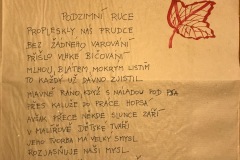 PODZIMNÍ RUCE
PROPLESKLY NÁS PRUDCE
BEZ ŽÁDNÉHO VAROVÁNÍ
PŘIŠLO VLHKÉ BIČOVÁNÍ
MLHOU, BLÁTEM, MOKRÝM LISTÍM
TO KAŽDÝ UŽ DÁVNO ZJISTIL
HLAVNĚ RÁNO, KDYŽ S NÁLADOU POD PSA
PŘES KALUŽE DO PRÁCE HOPSA
AVŠAK PŘECE NĚKDE SLUNCE ZÁŘÍ
V MALÍŘOVĚ DĚTSKÉ TVÁŘI
JEHO TVORBA MÁ VELKÝ SMYSL
ROZJASŇUJE NAŠI MYSL